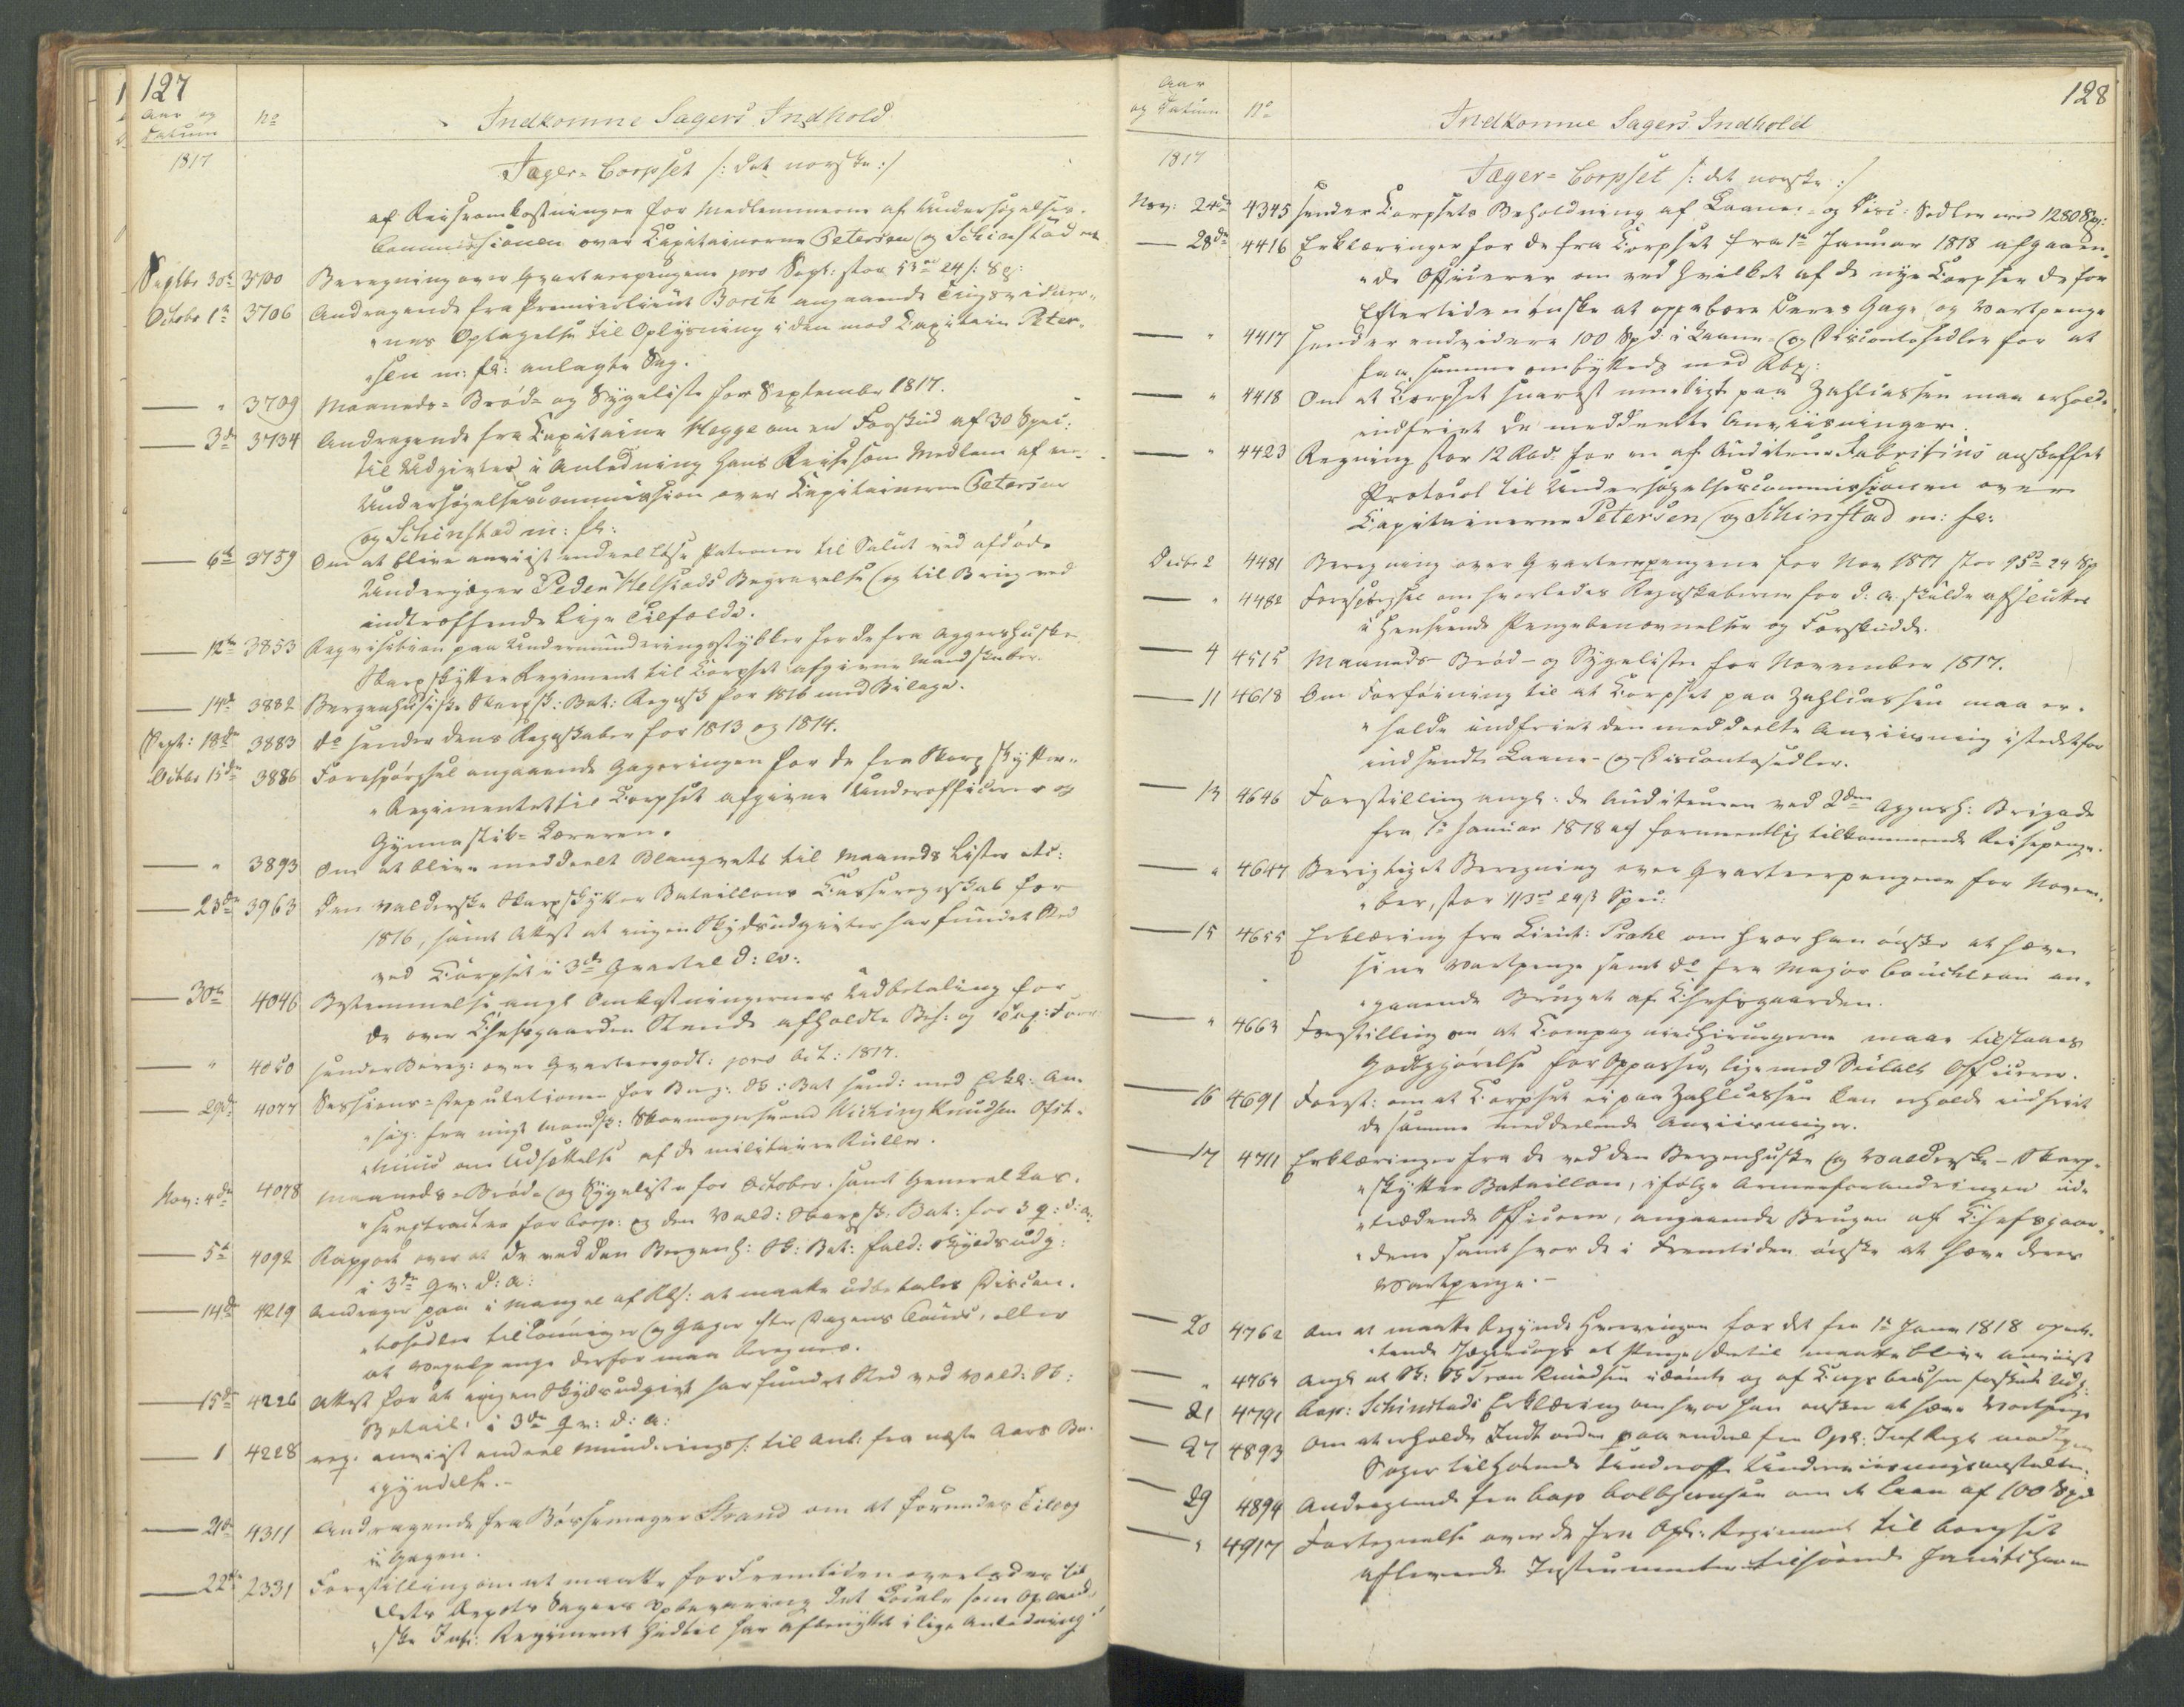 127
Aar og
Datum
No
Indkomne Sagers Indhold
1817
Jæger-Corpset /: det norske :/
af Reiseomkostninger for Medlemmerne af Undersøgelses-
Commissionen over Capitainerne Petersen og Schinstad
Septbr 30te 3700 Beregning over Qvarteerpengene pro Sept: stor
Octobr 1te 3706 Andragende fra Premierlieut Borch angaaende Tingsvidner-
"nes Optagelse til Oplysning i den mod Capitain Peter-
"sen m: fl: anlagte Sag.
— " 3709 Maaneds- Brød- og Sygeliste for September 1817.
— 3die 3734 Andragende fra Capitaine Hegge om en Forskud af 30 Spec:
til Udgivter i Anledning hans Reise som Medlem af en
Undersøgelsescommission over Capitainerne Petersen
og Schinstad m: fl:
— 6te 3759 Om at blive anviist endeel løse Patroner til Salut ved afdøde
Underjæger Peder Helstads Begravelse og til Brug ved
indtreffende lige Tilfælde.
— 12te 3853 Reqvisition paa Undermunderingsstykker for de fra Aggershuske
Skarpskytter Regiment til Corpset afgivne Mandskaber.
— 14de 3882 Bergenhusiske Skarpsk: Bat: Regnsk for 1816 med Bilage.
Sept: 18de 3883 do sender dens Regnskaber for 1813 og 1814.
Octbr 15de 3886 Forespørgsel angaaende Gageringen for de fra Skarpskytter-
"Regimentet til Corpset afgivne Underofficerer og
Gymnastik-Læreren.
— " 3893 Om at blive meddeelt Blanqvets til Maaneds Lister etc:
— 23de 3963 Den Valderske Skarpskytter Bataillons Casseregnskab for
1816, samt Attest at ingen Skydsudgivter har fundet Sted
ved Corpset i 3die Qvartal d: A:
— 30te 4046 Bestemmelse angl Omkostningernes Udbetaling for
de over Chefsgaarden Stende afholdte Bes: og Tax: Forr
" 4050 sender Bereg: over Qvarteergodt: pro Oct: 1817.
— 29de 4077 Sessions-Deputationen for Berg: Sk: Bat send: med Erkl: An-
"søg: fra Skoemagersvend Knudsen
om Udsættelse af de militaire Ruller.
Nov: 4de 4078 Maaneds- Brød- og Sygeliste for October. samt General Cas-
"seextracter for Corps: og den Vald: Skarpsk: Bat: for 3 q: d: a:
— 5te 4092 Rapport over at de ved den Bergenh: Sk: Bat: fald: Skydsudg:
i 3die qv: d: a:
— 14de 4219 Andrager paa i Mangel af Rbs: at maatte udbetales Discon-
"tosedler til Lønninger og Gager efter Dagens Cours, eller
at derfor maa beregnes.
15de 4226 Attest for at ingen Skydsudgivt har fundet Sted ved Vald: Sk:
Batail: i 3die qv: d: a:
— 1 4228 req. anviist endeel Munderings: til Ank: fra næste Aars Be-
"gyndelse.-
— 21de 4311 Andragende fra Bøssemager Strand om at forundes Tillæg
i Gagen.
— 22de 2331 Forestilling om at maatte for Fremtiden overlades til
dets Depots Sagers Opbevaring det Locale som Opland-
"ske Inf: Regiment hidtil har afbenyttet i lige Anledning
128
Aar
og Datum
No
Indkomne Sagers Indhold
1817
Jæger-Corpset /: det norske :/
Nov: 24de 4345 sender Corpsets Beholdning af Laane- og Disc: Sedler med 1280 Sp:
— 28de 4416 Erklæringer for de fra Corpset fra 1te Januar 1818 afgaaen-
"de Officerer om ved hvilket af de nye Corpser de for
Eftertiden ønske at oppebære deres Gage og Vartpenge
— " 4417 sender endvidere 100 Spd: i Laane- og Discontosedler for at
faa samme ombyttede med Rbs:
— " 4418 Om at Corpset snarest mueligst paa Zahlcassen maa erholde
indfriet de meddeelte Anviisninger.
— " 4423 Regning stor 12 Rbd. for en af Auditeur Fabritius anskaffet
Protocol til Undersøgelsescommissionen over
Capitainerne Petersen og Schinstad m: fl:
Decbr 2 4481 Beregning over Qvarteerpengene for Nov 1817 stor
— " 4482 Forespørgsel om hvorledes Regnskaberne for d: a: skulde afsluttes
i Henseende Pengebenævnelse og Forskudde.
— 4 4515 Maaneds- Brød- og Sygelister for November 1817.
— 11 4618 Om Forføining til at Corpset paa Zahlcassen maa er-
"holde indfriet den meddeelte Anviisning istedetfor
indsendte Laane- og Discontosedler.
— 13 4646 Forstilling angl: de Auditeuren ved 2den Aggersh: Brigade
fra 1te Januar 1818 af formeentlig tilkommende Reisepenge.
— " 4647 Berigtiget Beregning over Qvarteerpengene for Novem-
"ber, stor
— 15 4655 Erklæring fra Lieut: Prahl om hvor han ønsker at hæve
sine Vartpenge samt do fra Major an-
"gaaende Bruget af Chefsgaarden.
— " 4663 Forstilling om at Compagniechirurgerne maae tilstaaes
Godtgjørelse for Oppasser, lige med Officerer.
— 16 4691 Forest: om at Corpset ei paa Zahlcassen kan erholde indfriet
de samme meddeelende Anviisninger.
— 17 4711 Erklæringer fra de ved den Bergenhuske og Valderske- Skarp-
"skytter Bataillon, ifølge Armeeforandringen ud-
"trædende Officerer, angaaende Brugen af Chefsgaar-
"dene samt hvor de i Fremtiden ønske at hæve deres
Vartpenge.-
— 20 4762 Om at maatte begynde Hvervingen for det fra 1te Januar 1818 opret-
"tende Jægercorps at Penge dertil maatte blive anviist
— " 4763 Angl at Sk: Knudsen
— 21 4791 Cap: Schinstads Erklæring om hvor han ønsker at hæve Vartpenge
— 27 4893 Om at erholde paa endeel fra Opl: Inf Regt
Sager tilhørende Underoff: Underviisningsanstalten.
29 4894 Andragende fra Cap om et Laan af 100 Spd
" 4917 Fortegnelse over de fra Opl: Regiment til Corpset
afleverede Instrumenter tilhørende